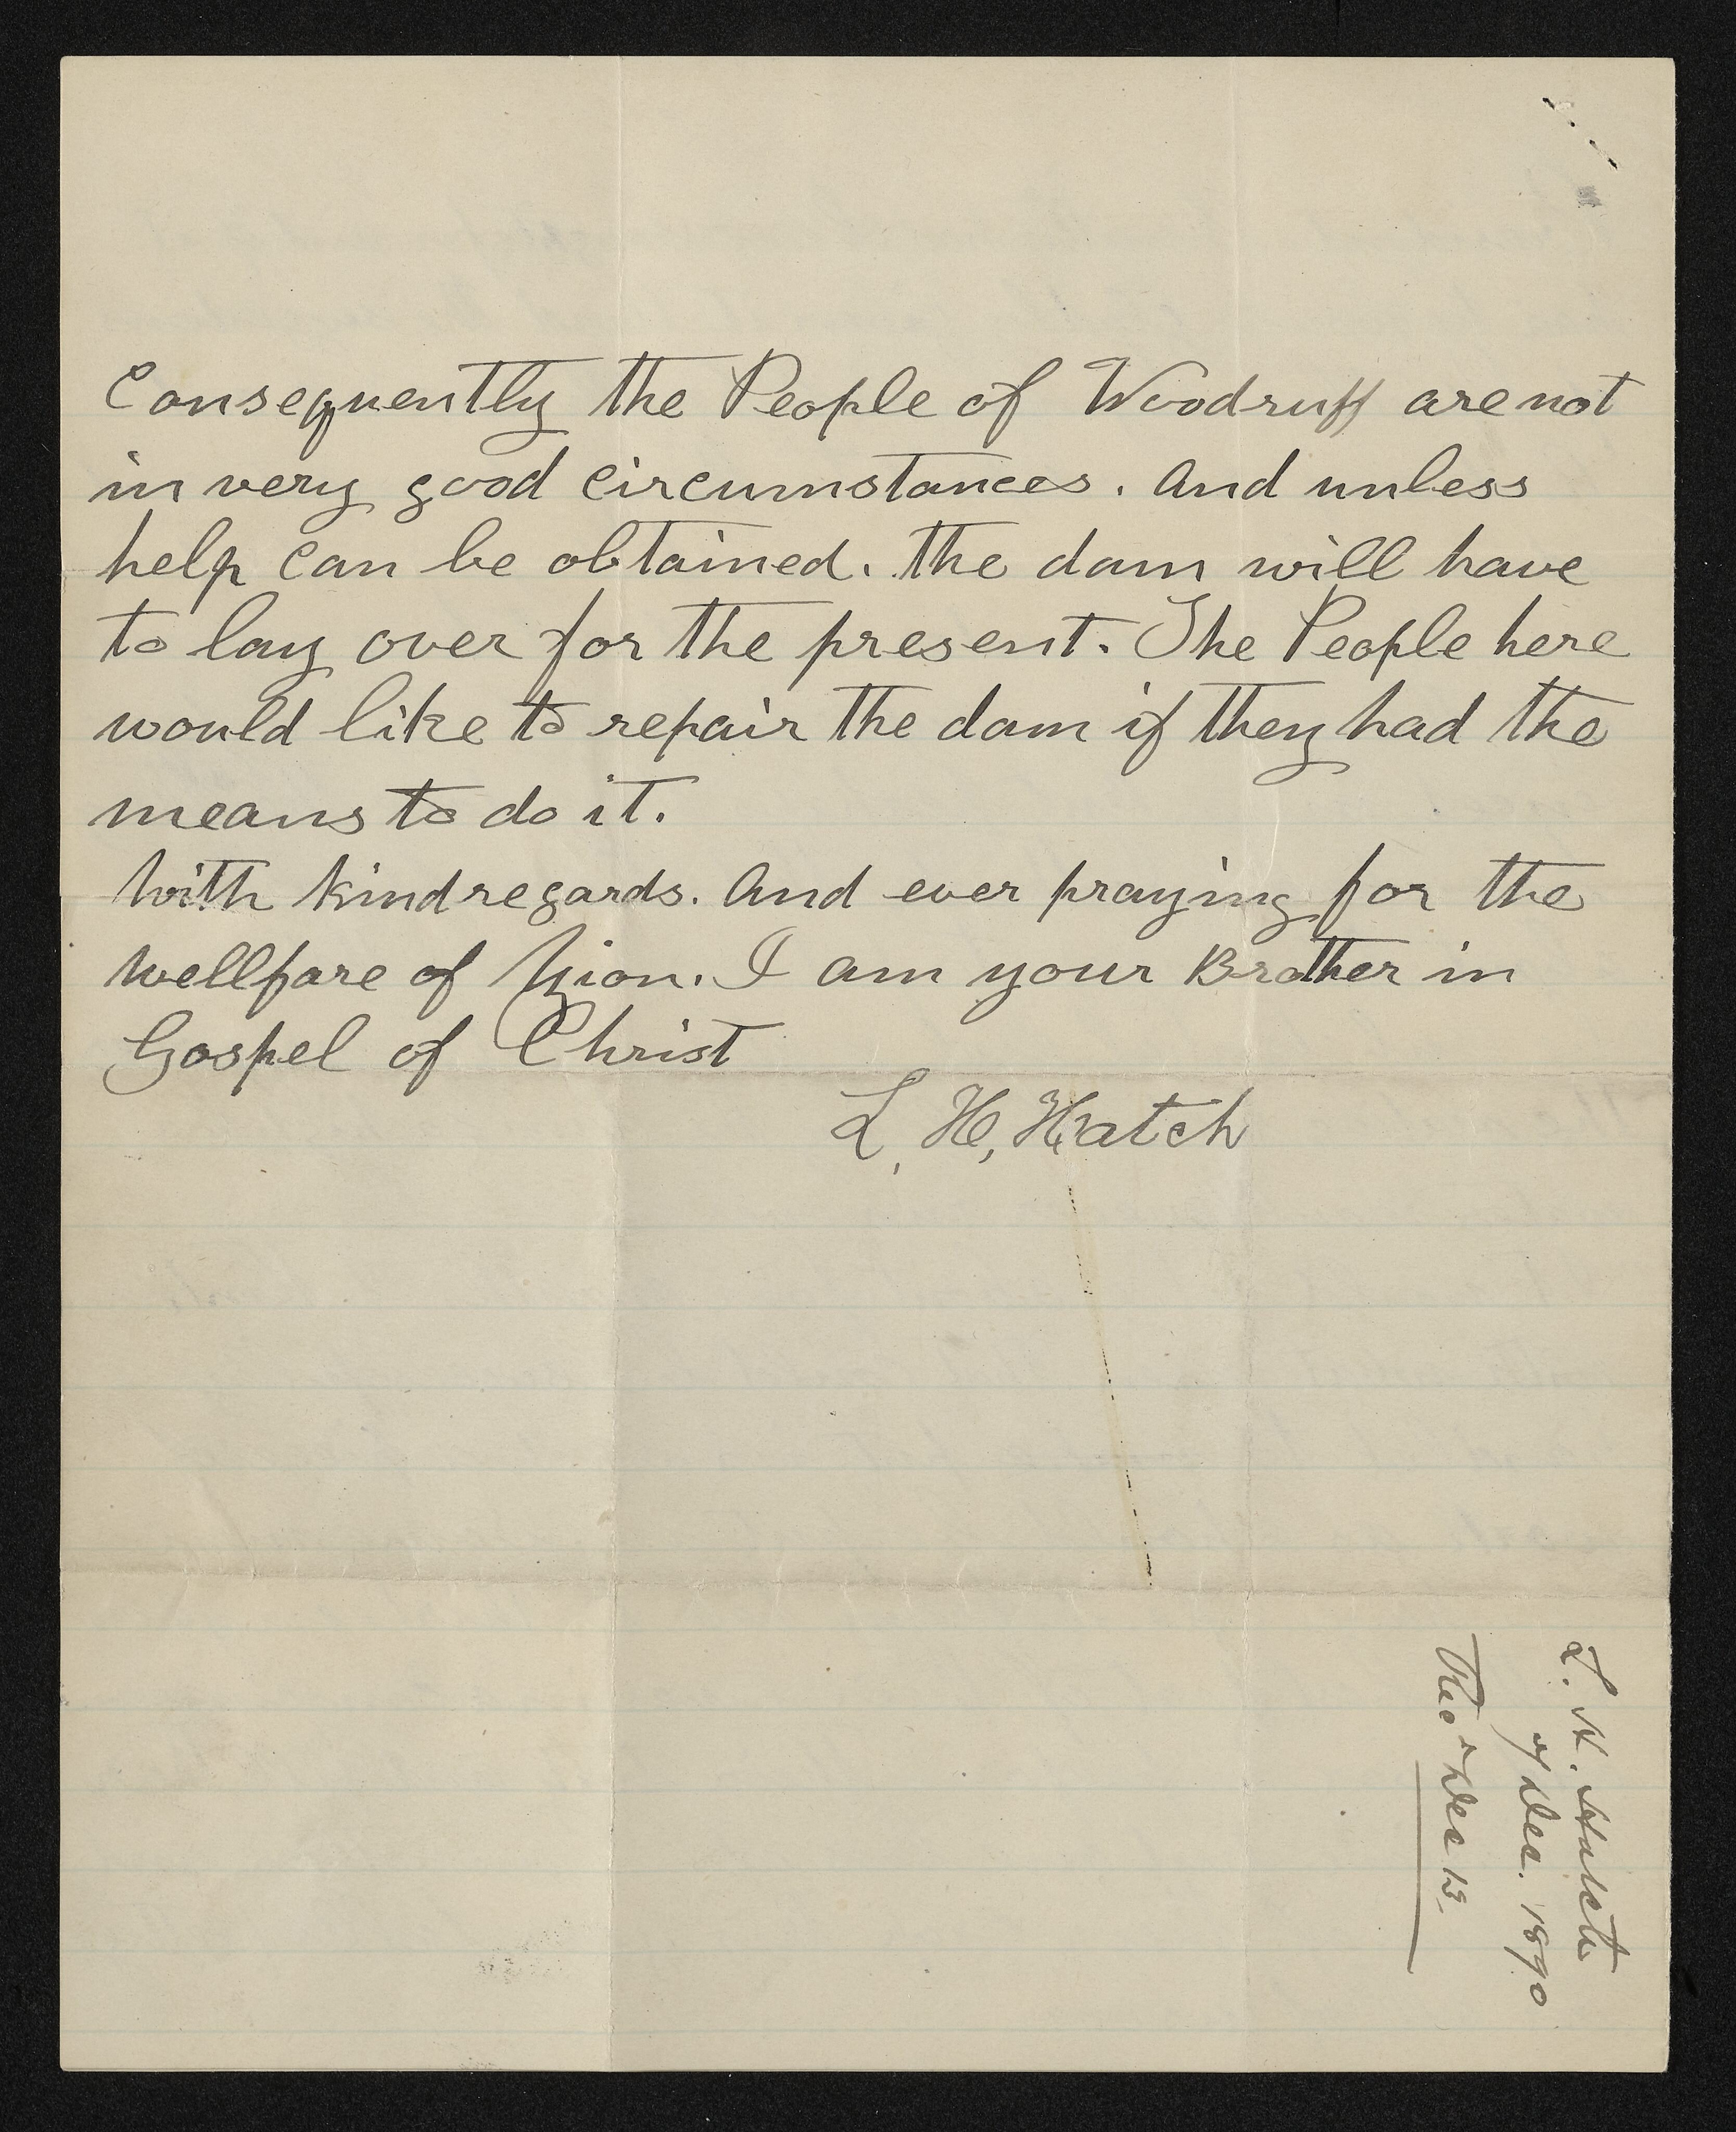 Consequently the People of Woodruff are not
in very good circumstances. And unless
help can be obtained. the dam will have
to lay over for the present. The People here
would like to repair the dam if they had the
means to do it.
With kind regards. And ever praying for the
wellfare of Zion. I am your Brother in
Gospel of Christ
L, H, Hatch
L. H. Hatch
of Dec. 1890
Rec'd Dec 13.